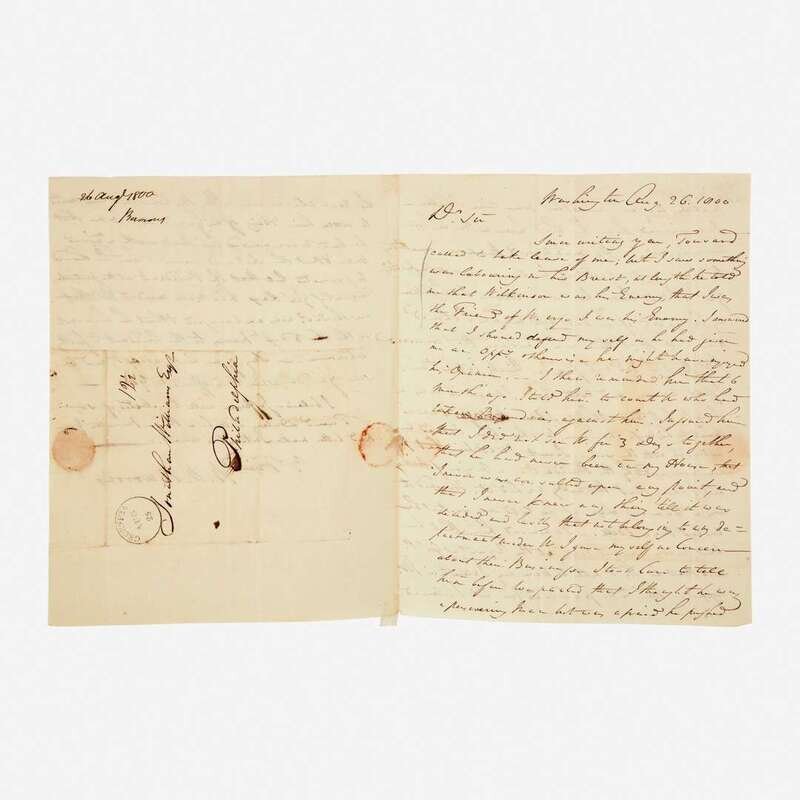 26 Augt 1800
Burrows
19½
Jonathan Williams Esqr
Philadelphia
Washington Aug. 26. 1800
Dr Sir
Since writing you, Tousard
called to take leave of me; but I saw something
was labouring in his Breast, at length he told
me that Wilkinson was his Enemy, that I was
the Friend of W. ergo I was his Enemy. I answered
that I should defend myself as he had given
me an oppy otherwise he might have enjoyed
his Opinion. I then reminded him that 6
months ago I told him to count W who had
against him. I assured him
that I did not see W for 3 days together,
that he had never been in my House, that
I never was consulted upon any point, and
that I never knew any thing till it was
decided, and lastly that not belonging to any de=
partment under W I gave myself no Concern
about their Business I took Care to tell
him before we parted that I thought he was
a persevering Man but was afraid he pushed